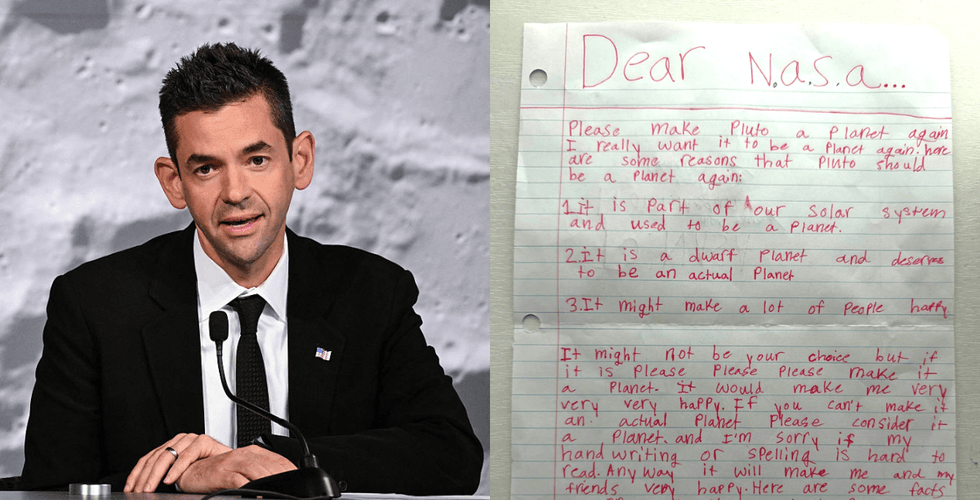 Dear N.a.S.a...
Please make Pluto a Planet again
I really want it to be a Planet again. here
are some reasons that Pluto should
be a Planet again:
1.it is part of our solar system
and used to be a Planet.
2.it is a dwarf Planet and deserves
to be an actual Planet
3.It might make a lot of People happy
It might not be your choice but if
it is Please Please Please make it
a Planet. it would make me very
very very happy. If you can't make it
an actual Planet Please consider it
a Planet. and I'm sorry if my
hand writing or spelling is hard to
read. Any way it will make me and my
friends very happy. Here are some facts